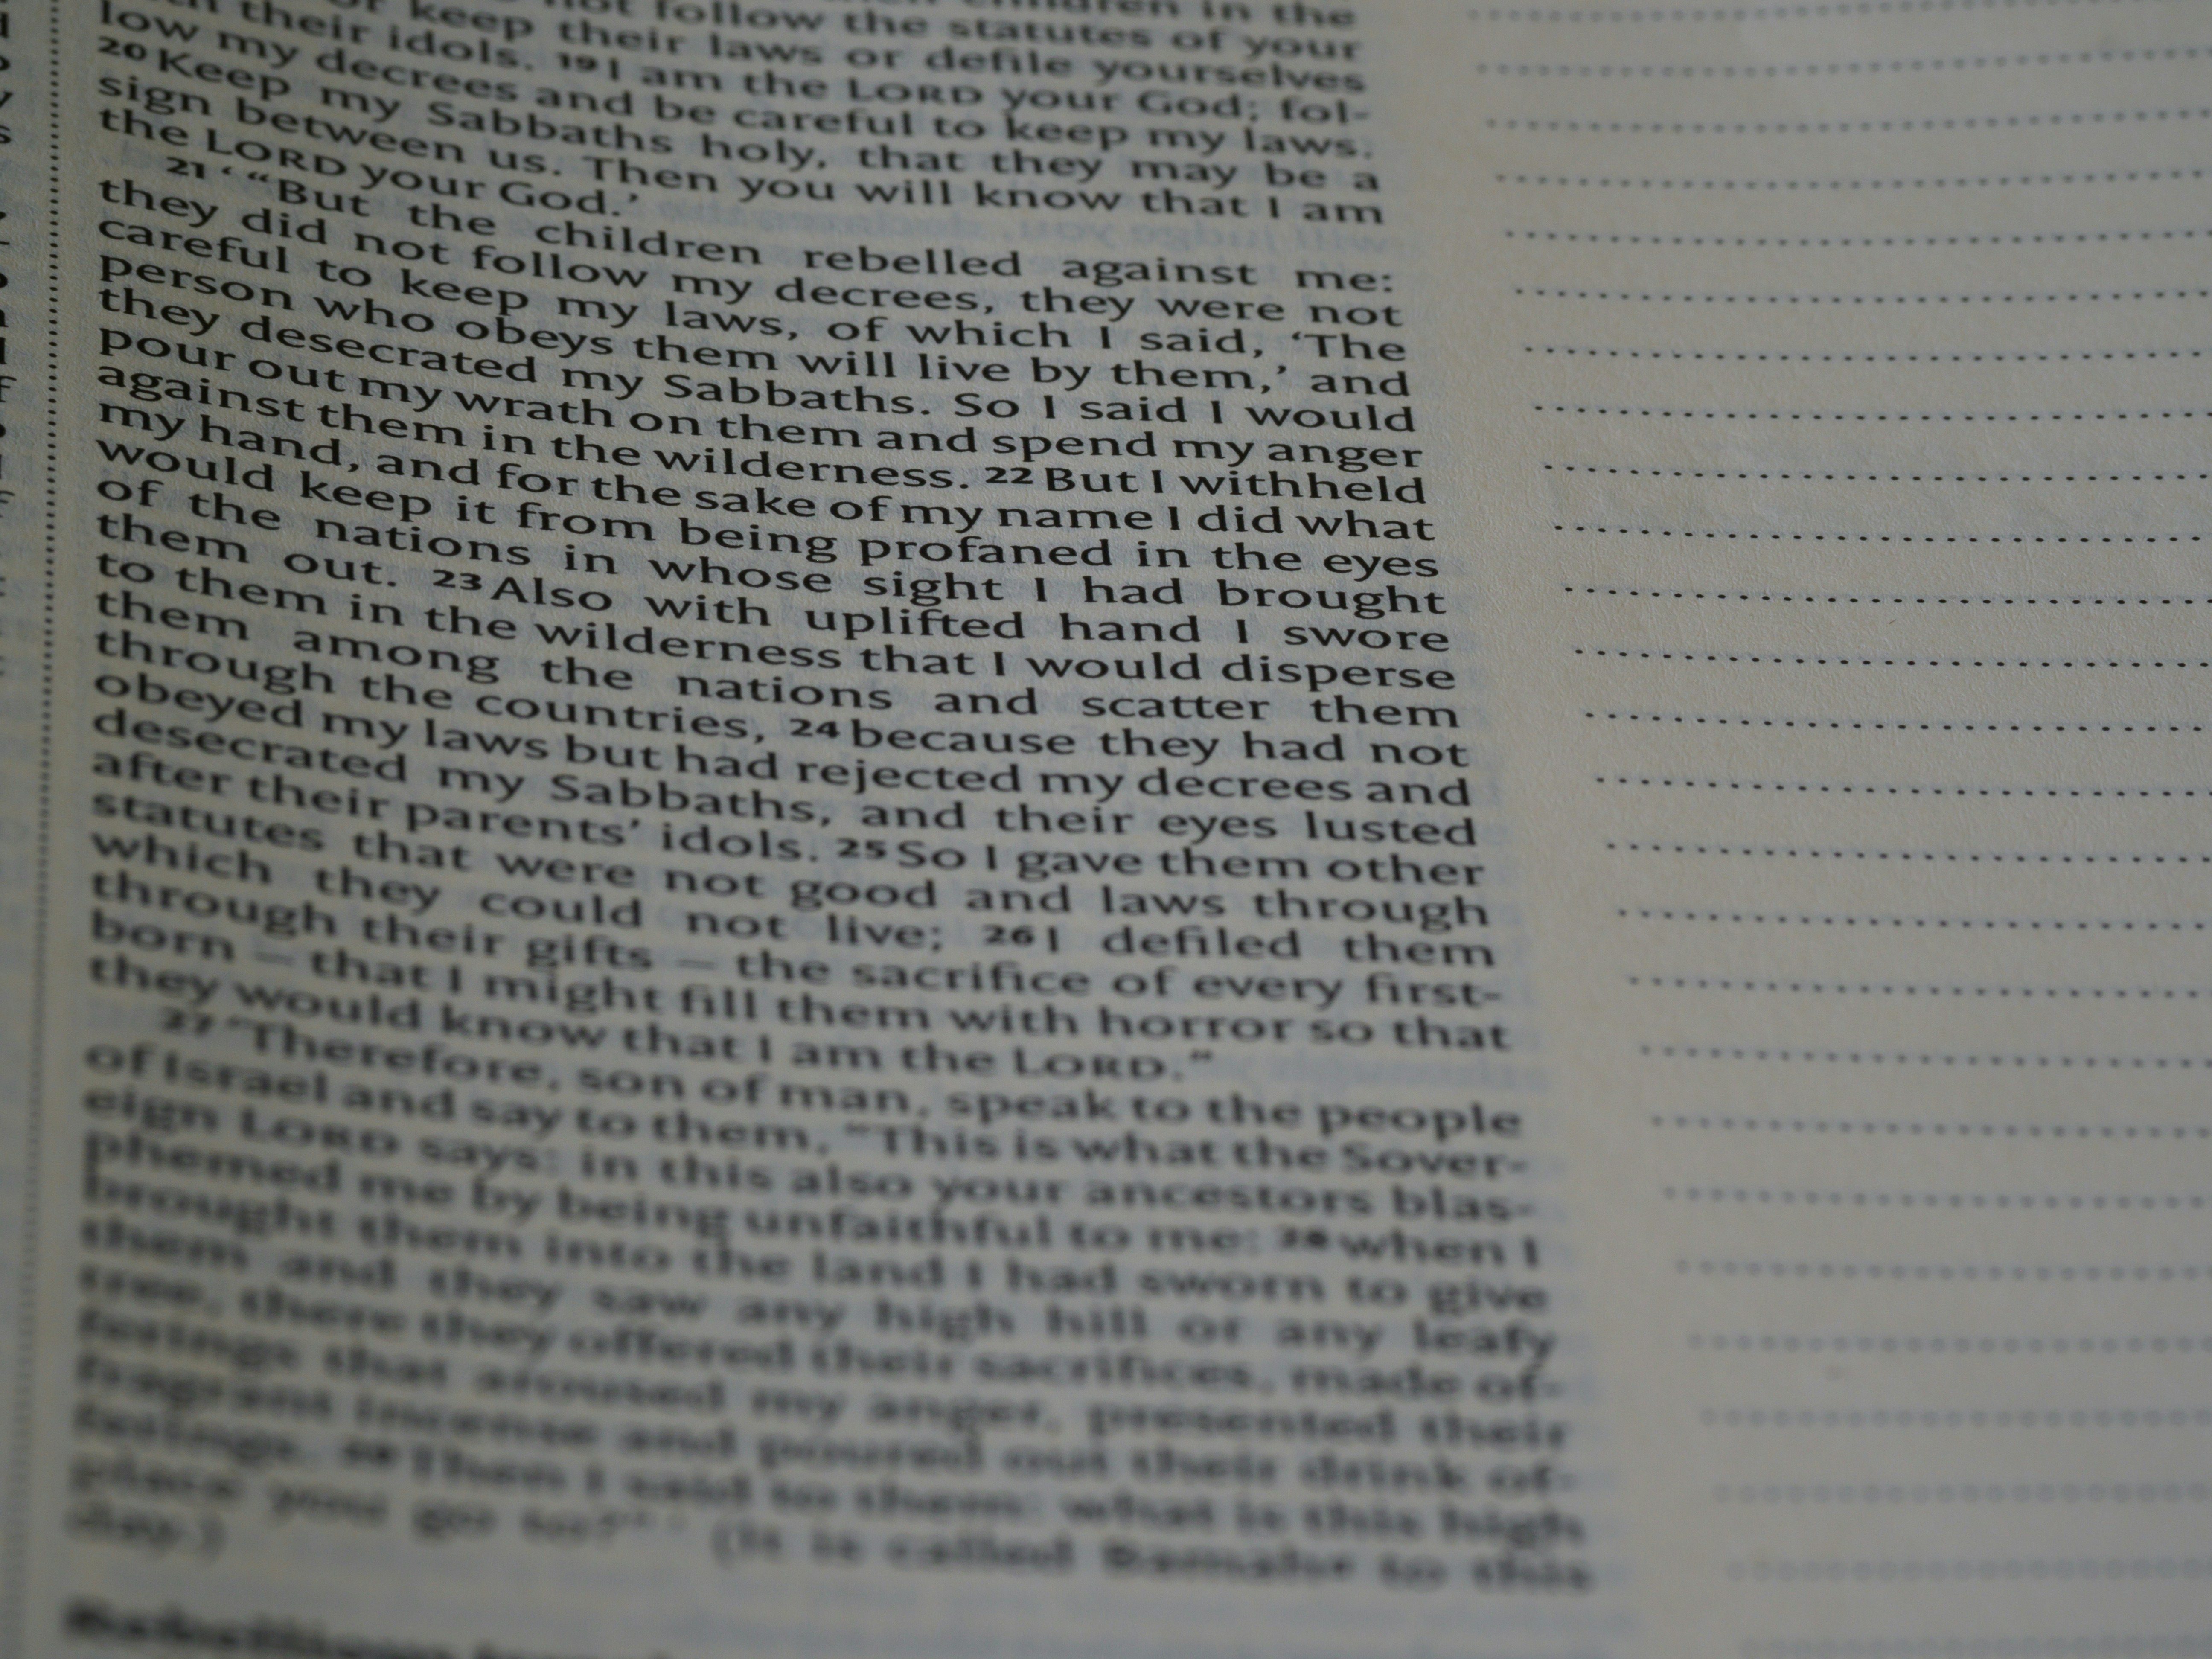 children in the
not follow the statutes of your
or keep their laws or defile yourselves
their idols. 19 I am the LORD your God; fol-
low my decrees and be careful to keep my laws.
20 Keep my Sabbaths holy, that they may be a
sign between us. Then you will know that I am
the LORD your God.’
21 ‘ “But the children rebelled against me:
they did not follow my decrees, they were not
careful to keep my laws, of which I said, ‘The
person who obeys them will live by them,’ and
they desecrated my Sabbaths. So I said I would
pour out my wrath on them and spend my anger
against them in the wilderness. 22 But I withheld
my hand, and for the sake of my name I did what
would keep it from being profaned in the eyes
of the nations in whose sight I had brought
them out. 23 Also with uplifted hand I swore
to them in the wilderness that I would disperse
them among the nations and scatter them
through the countries, 24 because they had not
obeyed my laws but had rejected my decrees and
desecrated my Sabbaths, and their eyes lusted
after their parents’ idols. 25 So I gave them other
statutes that were not good and laws through
which they could not live; 26 I defiled them
through their gifts – the sacrifice of every first-
born – that I might fill them with horror so that
they would know that I am the LORD.”
27 “Therefore, son of man, speak to the people
of Israel and say to them, “This is what the Sover-
eign LORD says: in this also your ancestors blas-
phemed me by being unfaithful to me: 28 when I
brought them into the land I had sworn to give
them and they saw any high hill or any leafy
tree, there they offered their sacrifices, made of-
ferings that aroused my anger, presented their
fragrant incense and poured out their drink of-
ferings. 29 Then I said to them: what is this high
place you go to?” ’ (It is called Bamah to this
day.)